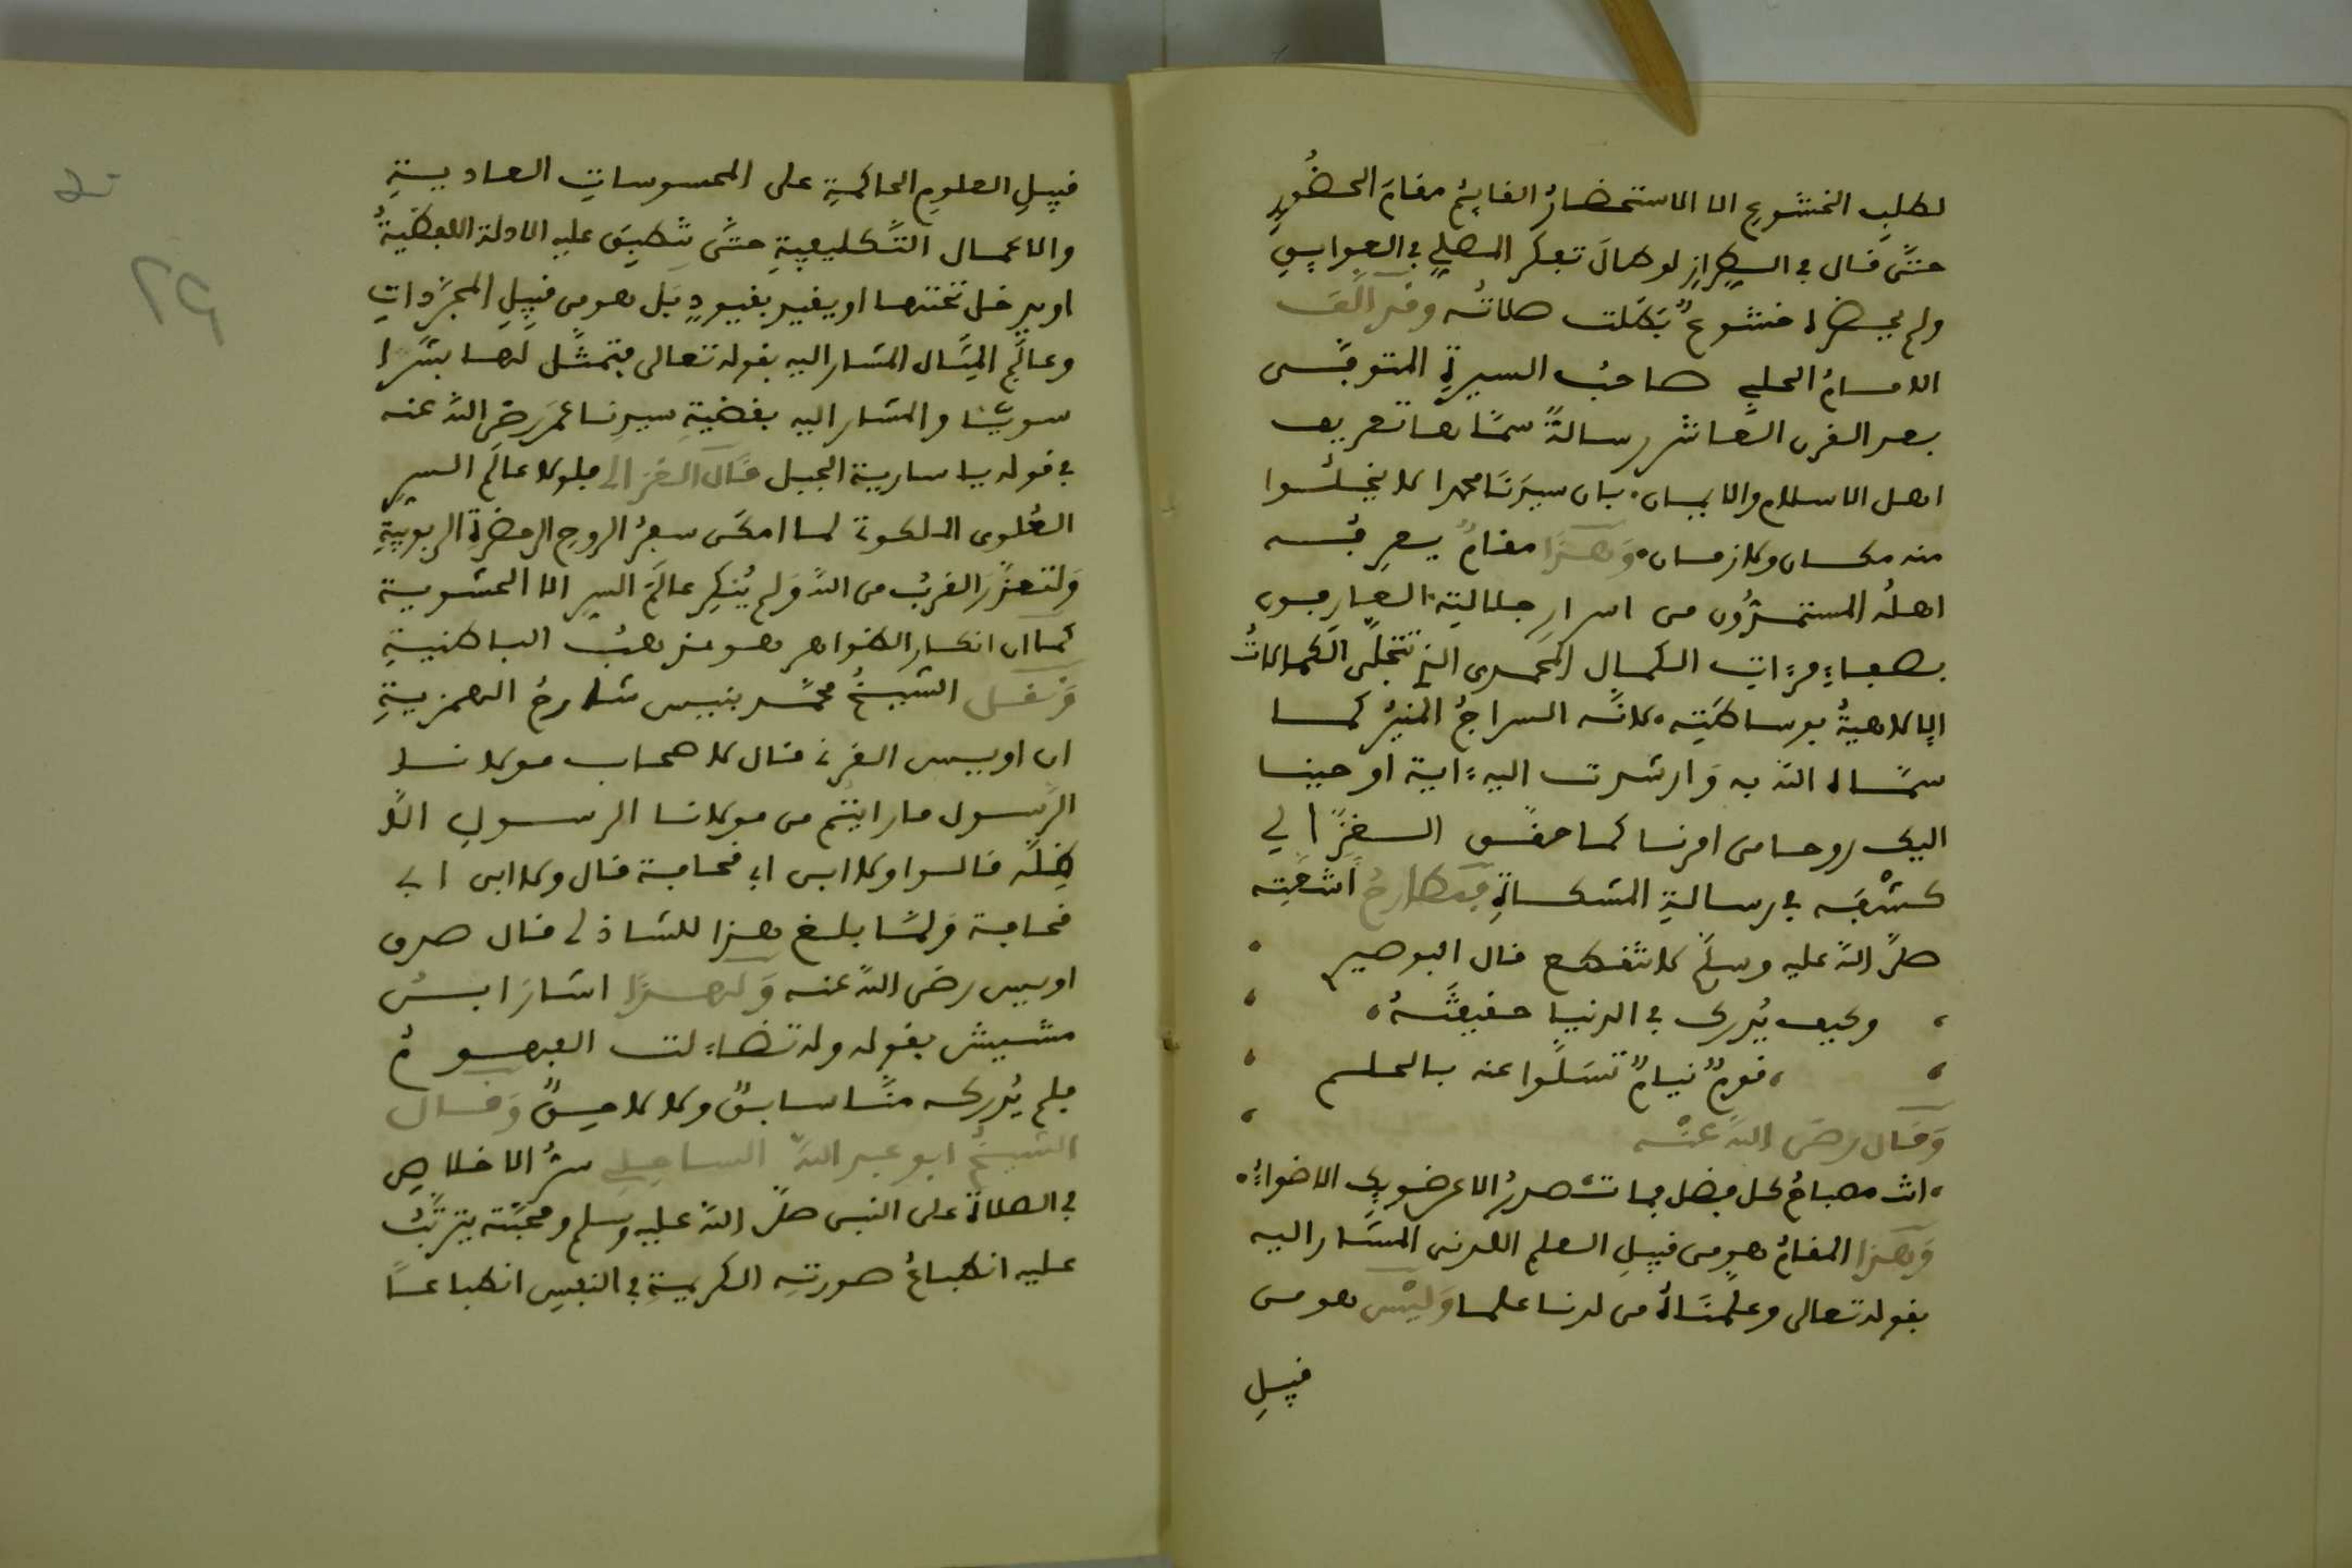 لطلب الخشوع الا الاستحضارُ القايمُ مقامَ الحضُورِ
حتَّى قال في الطراز لو طالَ تفكر المصلي في العواقب
ولم يحضره خشوعٌ بَطَلت صلاتُه وقد الَّفَ
الامامُ الحلبي صاحبُ السيرةِ المتوفَّى
بعد القرن العَاشر رسالةً سمَّاها تعريف
اهل الاسلام والايمان، بان سيدَنَا محمدا لا يخلُوا
منه مكان ولا زمان، وَهَذَا مقامٌ يعرِفُه
اهلُه المستمدُّون من اسرارِ جلالتِه العارفون
بصفاءِ مرءَات الكمال المحمدي التي تتجلَّى الكمالاتُ
الإلاهيةُ بوساطَتِه، لانَّه السراجُ المنيرُ كما
سمَّاه اللّه به وَارشدت اليه ءاية اوحينا
اليك روحا من امرنا كما حقَّق الغزَّالي
كشْفَه في رسالةِ المشكاةِ فمطارحُ اشعَّتِه
صلَّى اللّه عليه وسلَّم لا تنقطع قال البوصيري
، وكيف يُدرِك في الدنيا حقيقتَهُ،
، قومٌ نيامٌ تسَلَّوا عنه بالحلم
وَقَال رضي اللّه عنْه
، انت مصباحُ كل فضل فما تصدرُ الا عن ضوءِك الاضواءُ،
وَهَذا المقامُ هو من قبيلِ العلم اللدني المشار اليه
بقوله تعالى وعلَّمنَاهُ من لدنا علما وَليْسَ هو من
قبيلِ
قبيلِ العلومِ الحاكمةِ على المحسوساتِ العاديةِ
والاعمال التَّكليفيةِ حتَّى تطبَق عليه الادلة اللفظيةُ
او يدخل تحتها او يقيد بقيودٍ بَل هو من قبِيلِ المجرَّداتِ
وعالَمِ المِثَال المشار اليه بقوله تعالى فتمثَّل لها بشَرا
سويّا والمشار اليه بقضيةِ سيدِنا عمَر رضي اللّه عنه
في قوله يا سارية الجبل قَال الغزالي فلولا عالَم السرِ
العُلوى الملكوتي لما امكَن سفرُ الروحِ الى حضرةِ الربوبيةِ
وَلتعذَّرَ القربُ من اللّه وَلم يُنكِر عالَمَ السرِ الا الحشوية
كمَا ان انكار الظواهر هو مذهبُ الباطنيةِ
وَنقل الشيخُ محمَّد بنيس شارحُ الهمزيةِ
ان اويس القرني قال لاصحاب مولانا
الرَّسول ما رايتم من مولانا الرسولِ الّا
ظِلّه قالوا ولا ابن ابي قحافة قال ولا ابن ابي
قحافة وَلمَّا بلغ هذا للشاذلي قال صدق
اويس رضي اللّه عنه وَلهذَا اشارَ ابنُ
مشيش بقوله وله تضاءلت الفهومُ
فلم يُدركه منَّا سابقٌ ولا لاحقٌ وَقال
الشيخُ ابو عبد اللّه الساحلي سرُّ الاخلاصِ
في الصلاة على النبى صلَّى اللّه عليه وسلم ومحبَّته يترتَّبُ
عليه انطباعُ صورتِه الكريمةِ في النفسِ انطباعًا